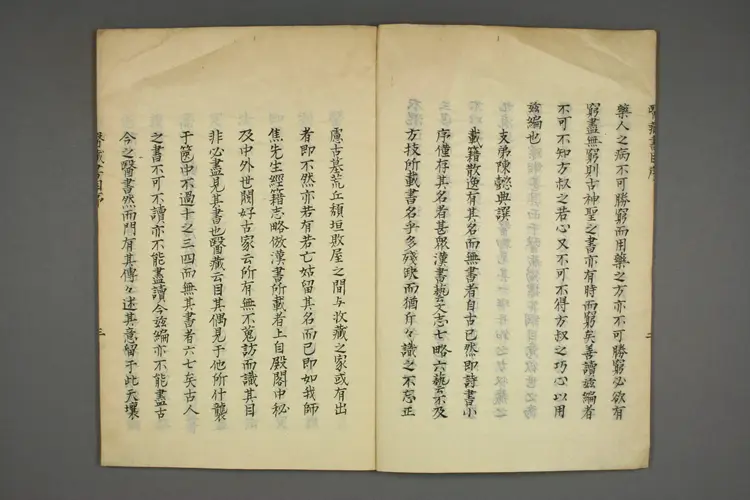 醫藏書目序
藥人之病不可勝窮而用藥之方亦不可勝窮必欲有
窮盡無窮則古神聖之書亦有時而窮矣善讀茲編者
不可不知方叔之苦心又不可不得方叔之巧心以用
茲編也
友弟陳懿典譔
載籍散逸有其名而無書者自古已然即詩書小
序僅存其名者甚眾漢書藝文志七略六藝以及
方技所載書名乎多殘映而猶斤々識之不忘正
二
慮古墓荒丘頹垣敗屋之間与收藏之家或有出
者即不然亦若有若亡姑留其名而已即如我師
焦先生經籍志略倣漢書所載者上自殿閣中秘
及中外世閥好古家云所有無不蒐訪而識其目
非必盡見其書也醫藏云目其偶見于他所什襲
于篋中不過十之三四而無其書者六七矣古人
之書不可不讀亦不能盡讀今茲編亦不能盡古
今之醫書然而門有其傳々述其意留于此天壤
醫藏書目序
三